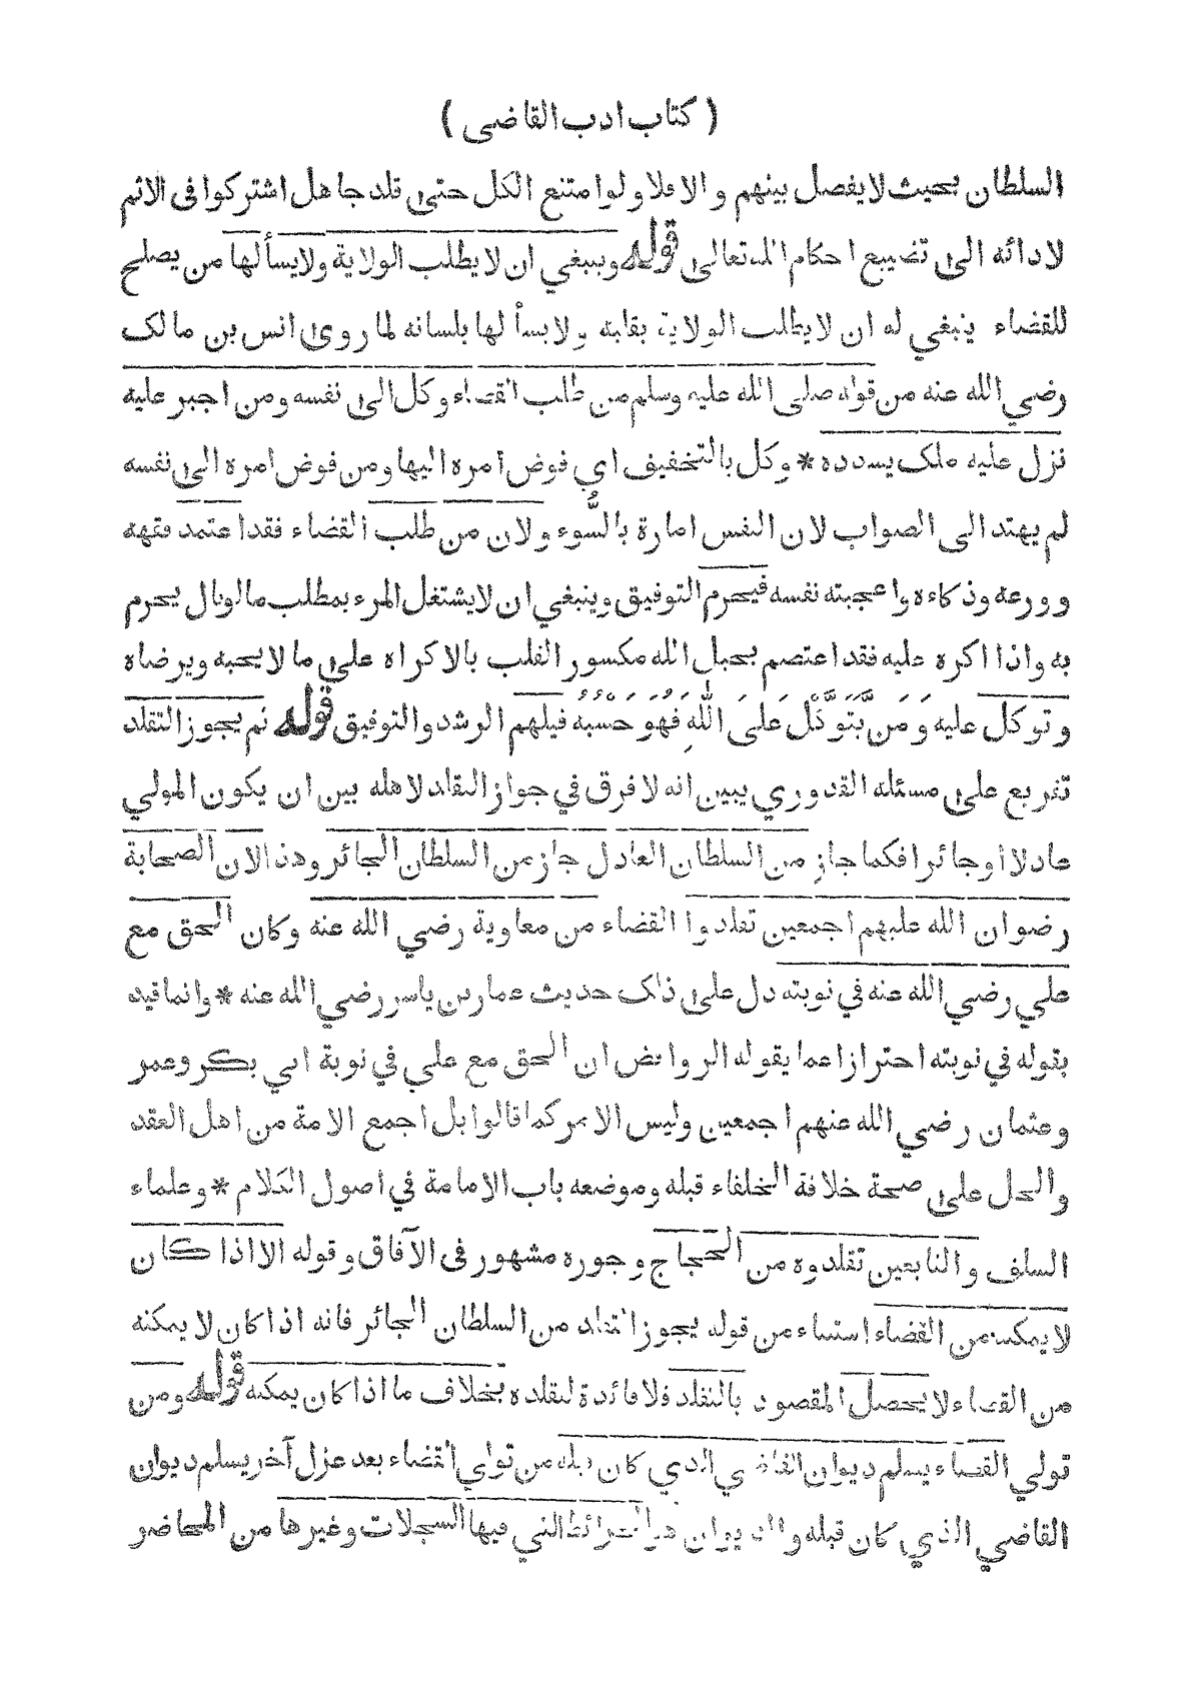 ( كتاب ادب القاضى )
السلطان بحيث لا يفصل بينهم والا فلا ولو امتنع الكل حتى قلد جاهل اشتركوا فى الاثم
لادائه الى تضييع احكام الله تعالى قوله وينبغي ان لا يطلب الولاية ولا يسألها من يصلح
للقضاء ينبغي له ان لا يطلب الولاية بقلبه ولا يسألها بلسانه لما روى انس بن مالك
رضي الله عنه من قوله صلى الله عليه وسلم من طلب القضاء وكل الى نفسه ومن اجبر عليه
نزل عليه ملك يسدده * وكل بالتخفيف اي فوض أمره اليها ومن فوض امره الى نفسه
لم يهتد الى الصواب لان النفس امارة بالسُّوء ولان من طلب القضاء فقد اعتمد فقهه
وورعه وذكاءه واعجبته نفسه فيحرم التوفيق وينبغي ان لا يشتغل المرء بمطلب ما لو نال يحرم
به واذا اكره عليه فقد اعتصم بحبل الله مكسور القلب بالاكراه على ما لا يحبه ويرضاه
وتوكل عليه وَمَن يَّتَوَكَّلْ عَلَى اللّٰهِ فَهُوَ حَسْبُهُ فيلهم الرشد والتوفيق قوله ثم يجوز التقلد
تفريع على مسئله القدوري يبين انه لا فرق في جواز التقلد لاهله بين ان يكون المولي
عادلا أو جائرا فكما جاز من السلطان العادل جاز من السلطان الجائر وهذا لان الصحابة
رضوان الله عليهم اجمعين تقلدوا القضاء من معاوية رضي الله عنه وكان الحق مع
علي رضي الله عنه في نوبته دل على ذلك حديث عمار بن ياسر رضي الله عنه * وانما قيد
بقوله في نوبته احترازا عما يقوله الروافض ان الحق مع علي في نوبة ابي بكر وعمر
وعثمان رضي الله عنهم اجمعين وليس الامر كما قالوا بل اجمع الامة من اهل العقد
والحل على صحة خلافة الخلفاء قبله وموضعه باب الامامة في اصول الكلام * وعلماء
السلف والتابعين تقلدوه من الحجاج وجوره مشهور فى الآفاق وقوله الا اذا كان
لا يمكنه من القضاء إستثناء من قوله يجوز التقلد من السلطان الجائر فانه اذا كان لا يمكنه
من القضاء لا يحصل المقصود بالتقلد فلا فائدة لتقلده بخلاف ما اذا كان يمكنه قوله ومن
تولي القضاء يسلم ديوان القاضي الذي كان قبله من تولي القضاء بعد عزل آخر يسلم ديوان
القاضي الذي كان قبله والديوان هو الخرائط التي فيها السجلات وغيرها من المحاضر